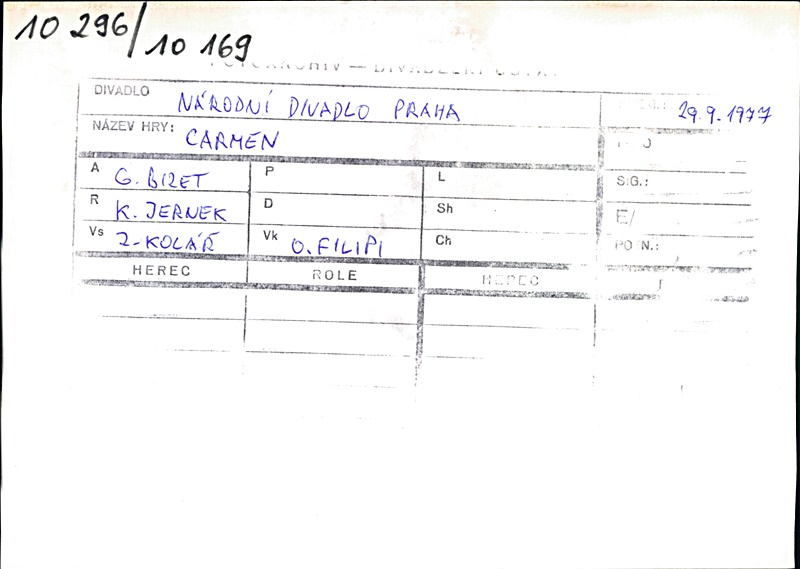 10 296/10 169
DIVADLO NÁRODNÍ DIVADLO PRAHA 29.9.1977
NÁZEV HRY: CARMEN
A G. BIZET P L SIG.:
R K. JERNEK D Sh E/
Vs Z. KOLÁŘ Vk O. FILIPI Ch
HEREC ROLE HEREC